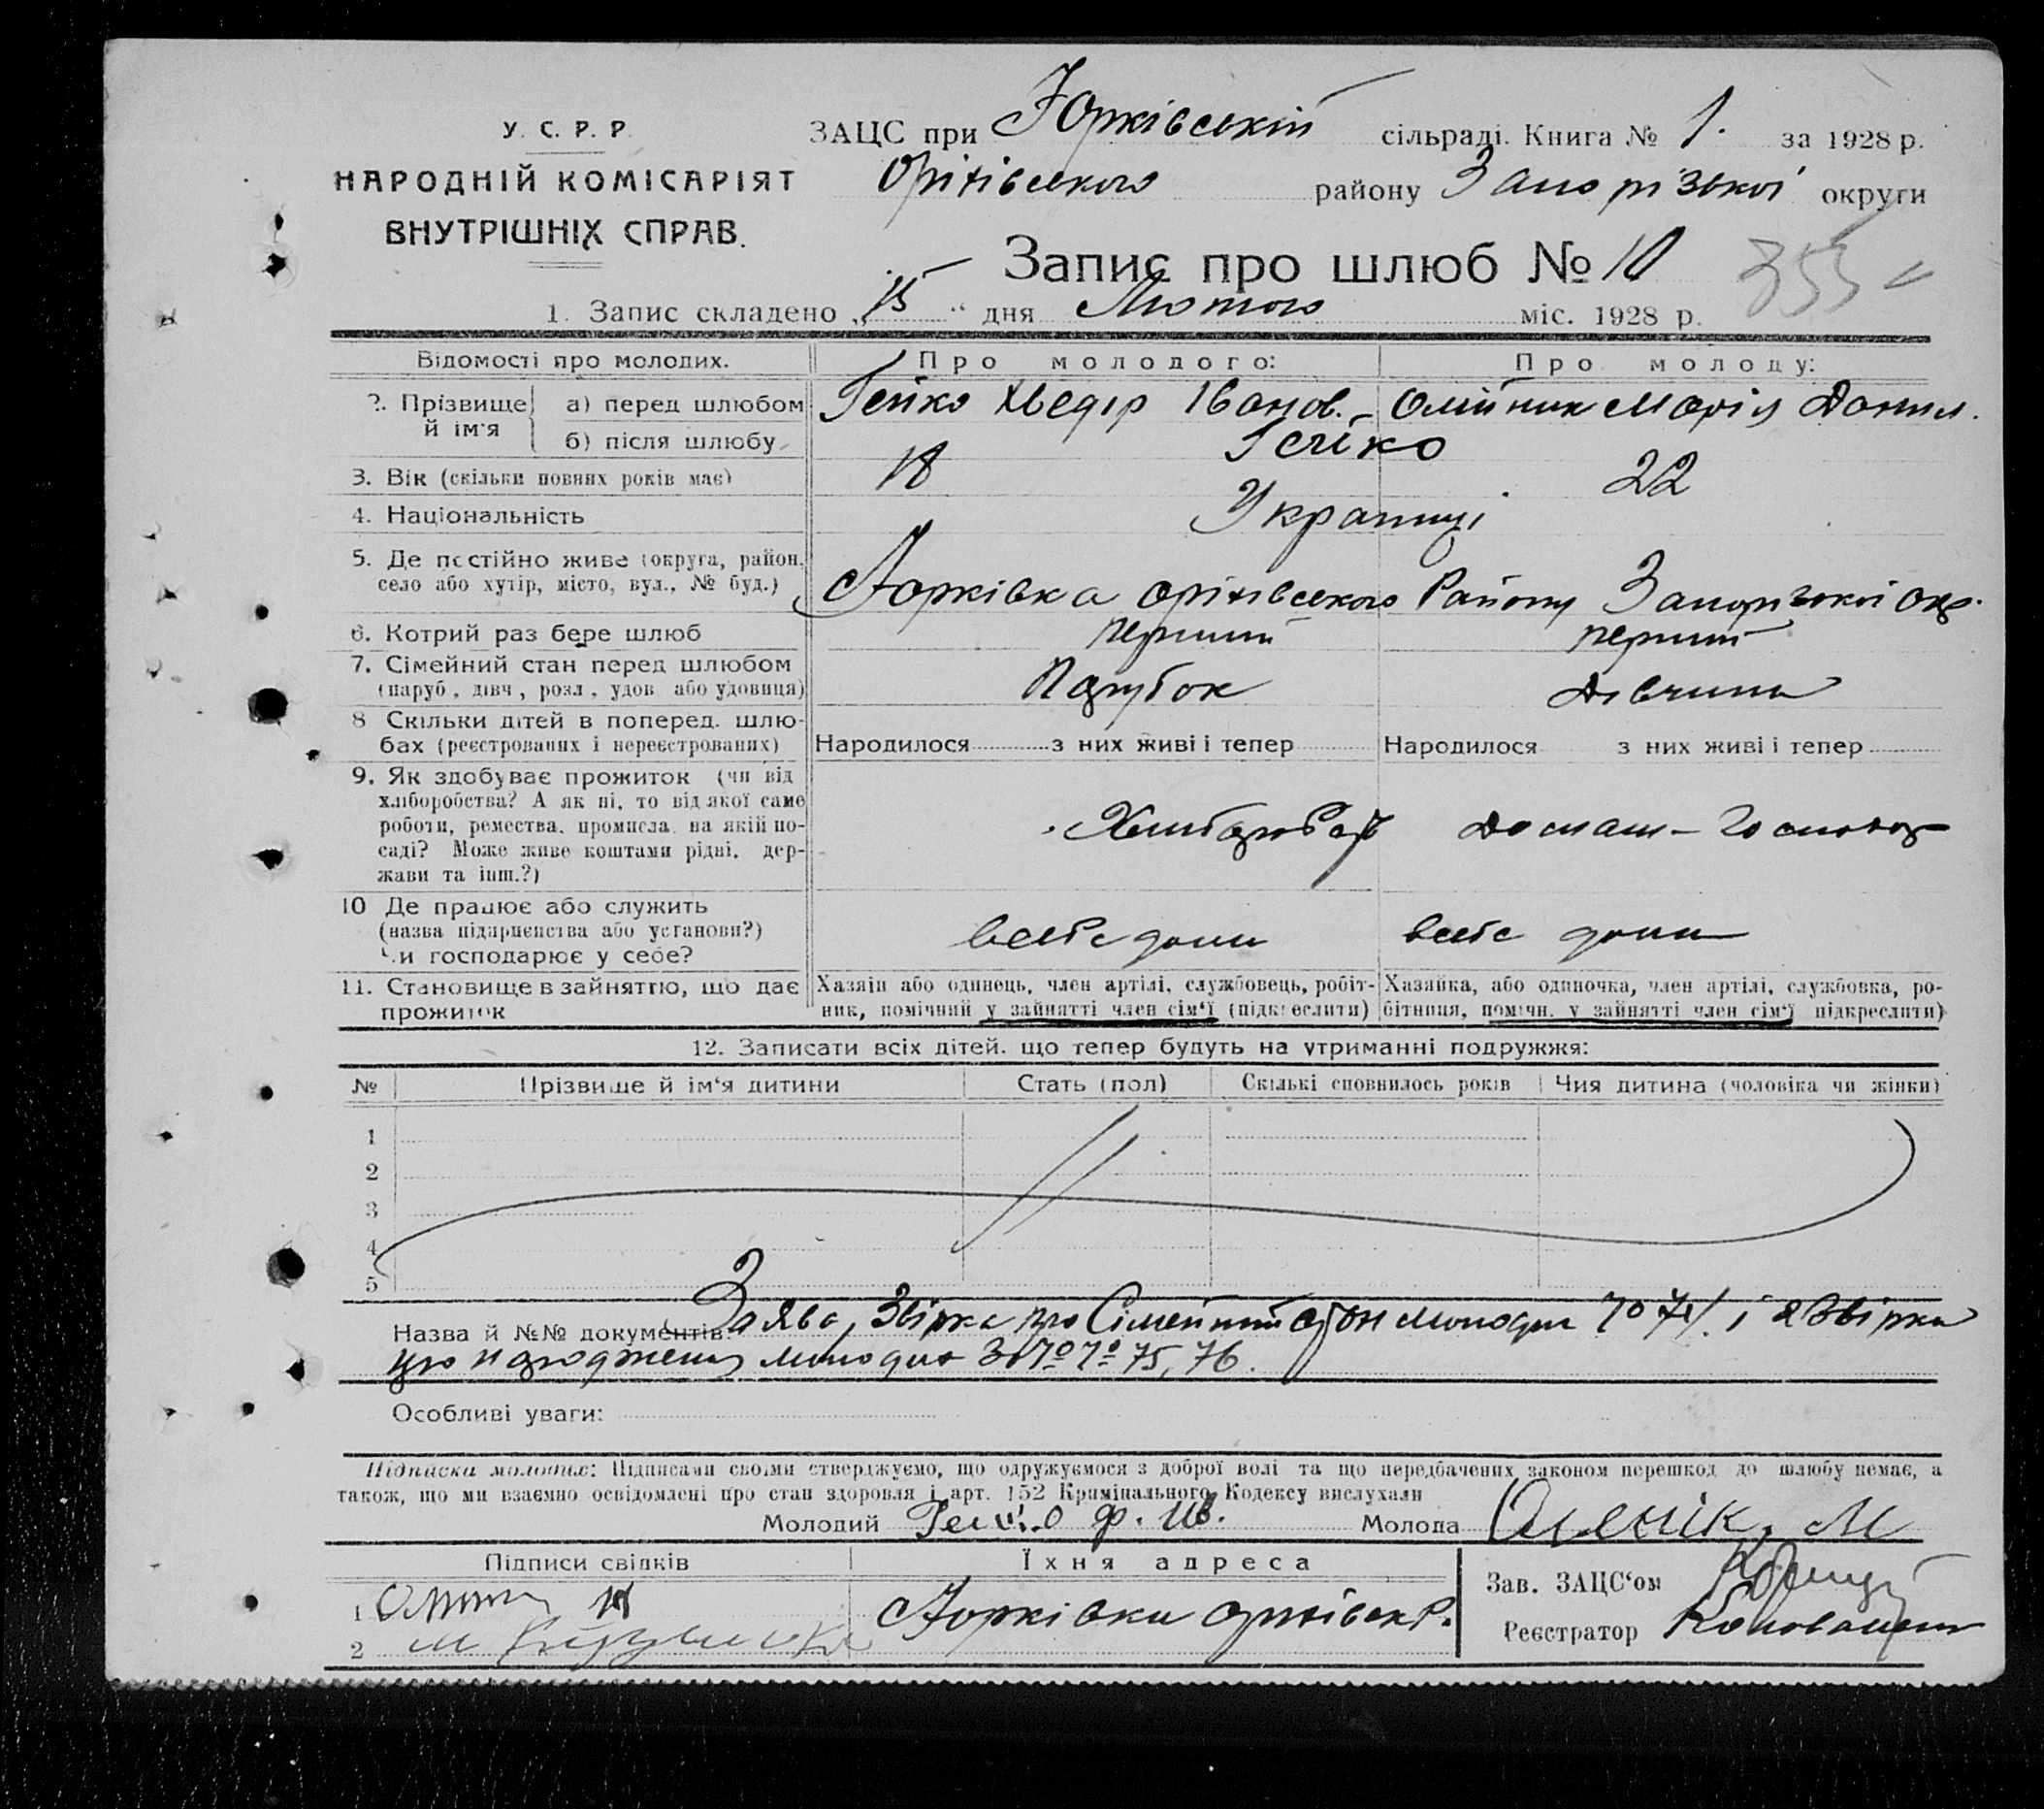 У. С. Р. Р.
НАРОДНІЙ КОМІСАРІЯТ
ВНУТРІШНІХ СПРАВ.
ЗАЦС при Юрківській сільраді. Книга № 1. за 1928 р.
Оріхівського району Запорізької округи
Запис про шлюб № 10
353
1. Запис складено „15“ дня Лютого міс. 1928 р.
Відомості про молодих. Про молодого: Про молоду:
2. Прізвище й ім'я а) перед шлюбом Гейко Хведір Іванов. Олійник Марія Данил.
б) після шлюбу Гейко
3. Вік (скільки повних років має) 18 22
4. Національність Українці
5. Де постійно живе (округа, район,
село або хутір, місто, вул., № буд.) Юрківка Оріхівського Району Запорізької окр.
6. Котрий раз бере шлюб перший перший
7. Сімейний стан перед шлюбом
(паруб., дівч., розл., удов. або удовиця) Парубок Дівчина
8 Скільки дітей в поперед. шлю-
бах (реєстрованих і нереєстрованих) Народилося з них живі і тепер Народилося з них живі і тепер
9. Як здобуває прожиток (чи від
хліборобства? А як ні, то від якої саме
роботи, ремества, промисла, на якій по-
саді? Може живе коштами рідні, дер-
жави та інш.?) Хлибороб Домаш-Господар
10 Де працює або служить
(назва підприєнства або установи?)
Чи господарює у себе? в себе дома в себе дома
11. Становище в зайняттю, що дає
прожиток
Хазяїн або одинець, член артілі, службовець, робіт-
ник, помічний у зайнятті член сім'ї (підкреслити)
Хазяйка, або одиночка, член артілі, службовка, ро-
бітниця, помічн. у зайнятті член сім'ї підкреслити)
12. Записати всіх дітей, що тепер будуть на утриманні подружжя:
№ Прізвище й ім'я дитини Стать (пол) Скількі сповнилось років Чия дитина (чоловіка чи жінки)
1
2
3
4
5
Назва й №№ документів Заява, Звірка про Сімейний стан молодих № 74. і 2 Звірки
про народження молодих За №№ 75, 76.
Особливі уваги:
Підписка молодих: Підписами своїми стверджуємо, що одружуємося з доброї волі та що передбачених законом перешкод до шлюбу немає, а
також, що ми взаємно освідомлені про стан здоровля і арт. 152 Кримінального Кодексу вислухали
Молодий Гейко Ф. Ив. Молода Оленік. М
Підписи свідків Їхня адреса
1
2 М
Юрківка Оріхівськ Р.
Зав. ЗАЦС'ом
Реєстратор Коновалов